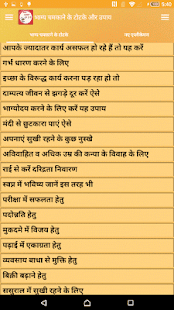 9:40
भाग्य चमकाने के टोटके और उपाय
भाग्य चमकाने के टोटके
नए एप्लीकेशन
आपके ज्यादातर कार्य असफल हो रहे हैं तो यह करें
गर्भ धारण करने के लिए
इच्छा के विरुद्ध कार्य करना पड़ रहा हो तो
दाम्पत्य जीवन से झगड़े दूर करें ऐसे
भाग्योदय करने के लिए करें यह उपाय
मंदी से छुटकारा पाएं ऐसे
अपनाएं सुखी रहने के कुछ नुस्खे
अविवाहित व अधिक उम्र की कन्या के विवाह के लिए
राई से करें दरिद्रता निवारण
स्वप्न में भविष्य जानें इस तरह भी
परीक्षा में सफलता हेतु
पदोन्नति हेतु
मुकदमे में विजय हेतु
पढ़ाई में एकाग्रता हेतु
व्यवसाय बाधा से मुक्ति हेतु
बिक्री बढ़ाने हेतु
ससुराल में सुखी रहने के लिए